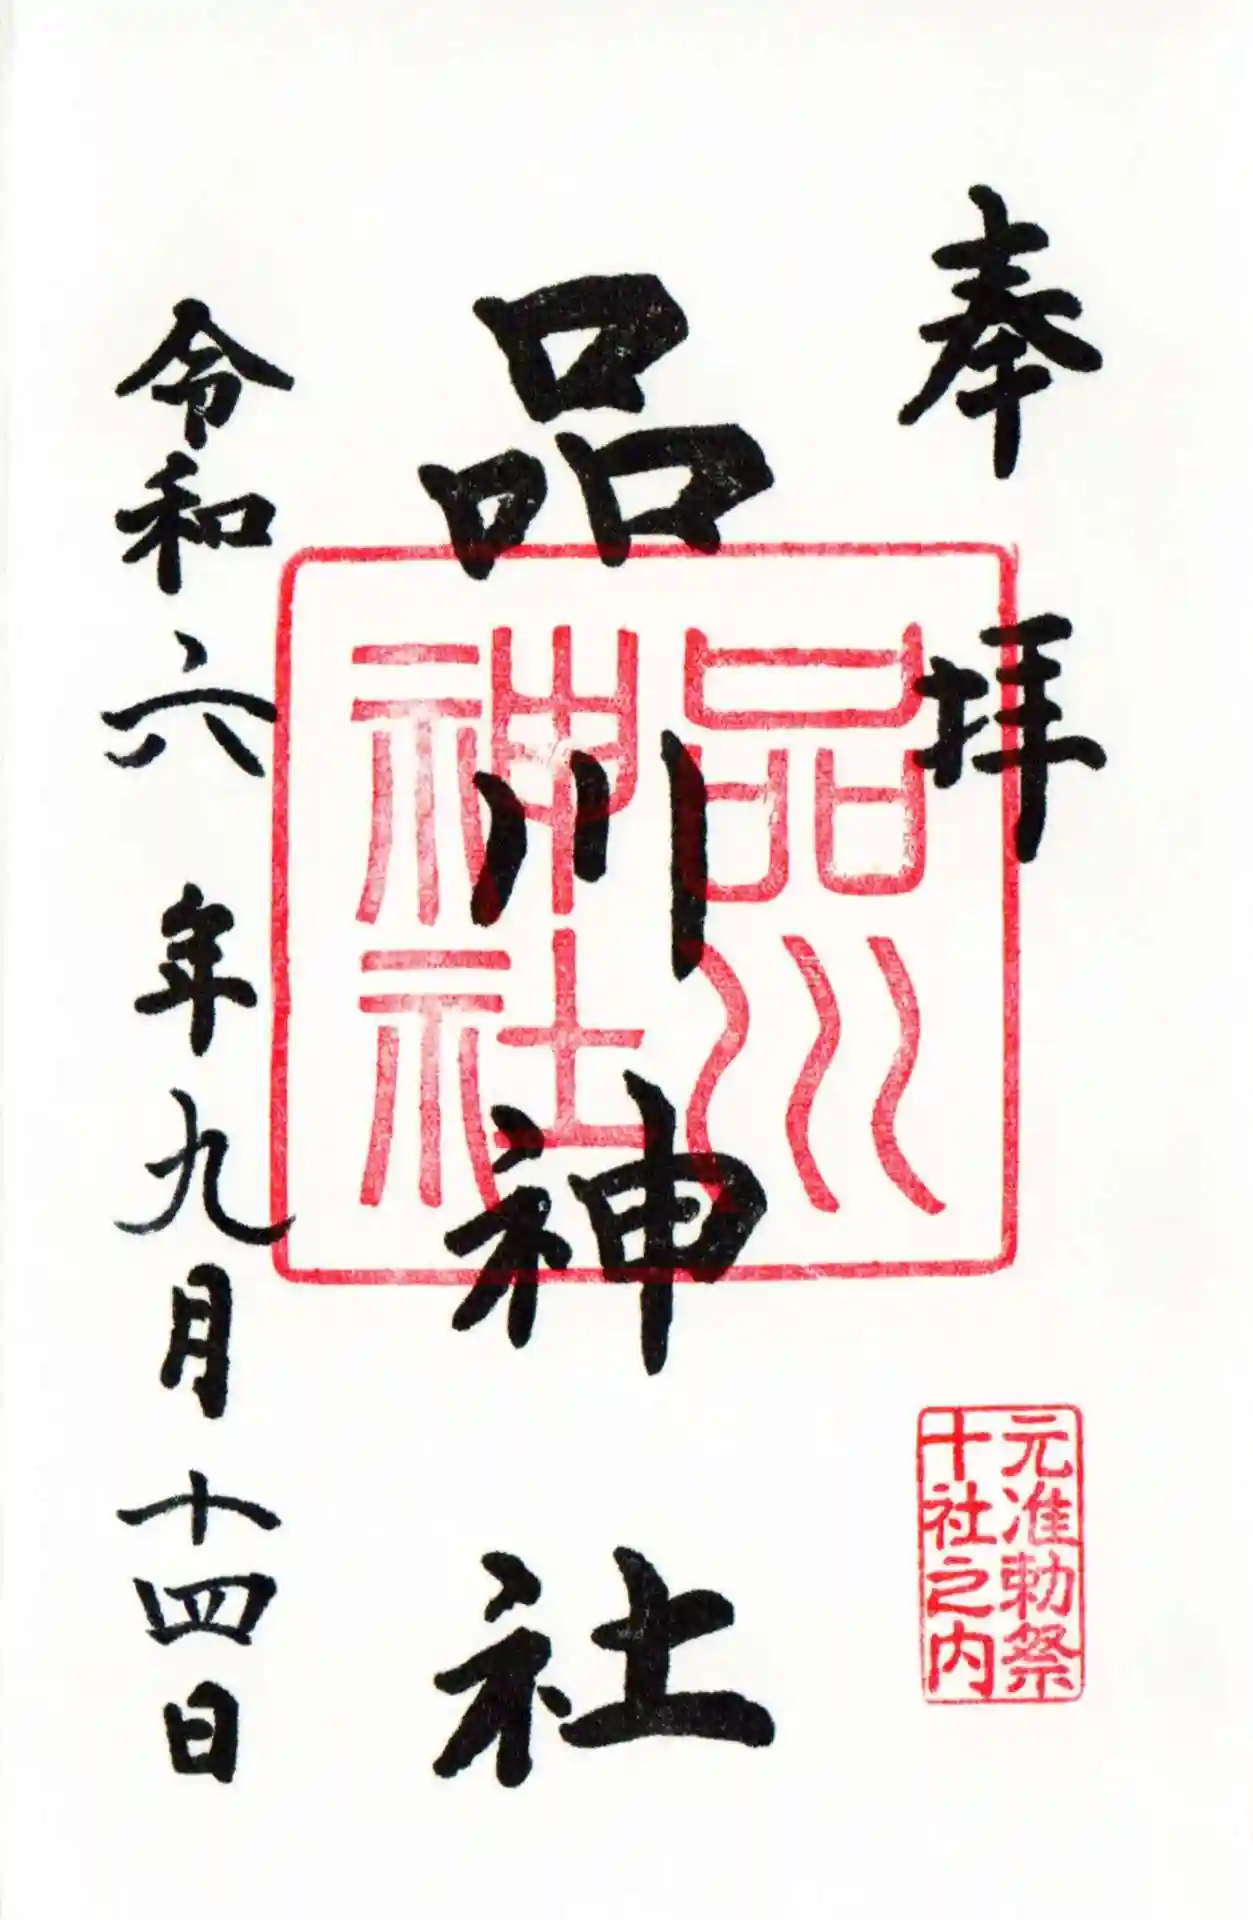 奉拝
元准勅祭
十社之内
品川神社
品川
神社
令和六年九月十四日